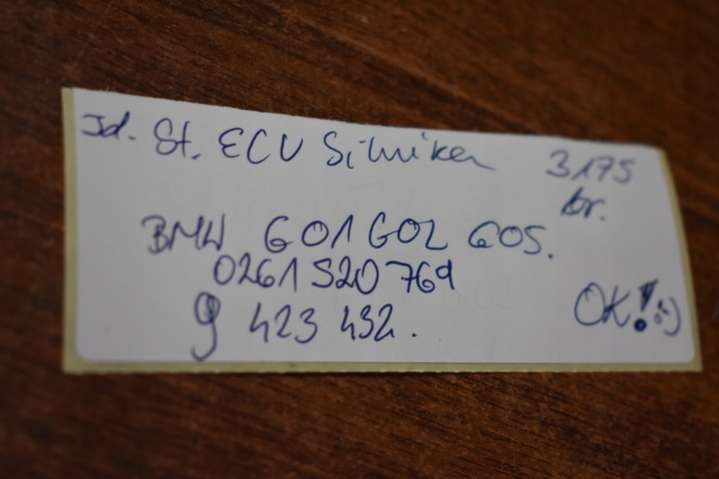 Jd. St. ECU Silnika 3175
br.
BMW G01 G02 G05.
0261S20769
9 423 432.
OK! :)